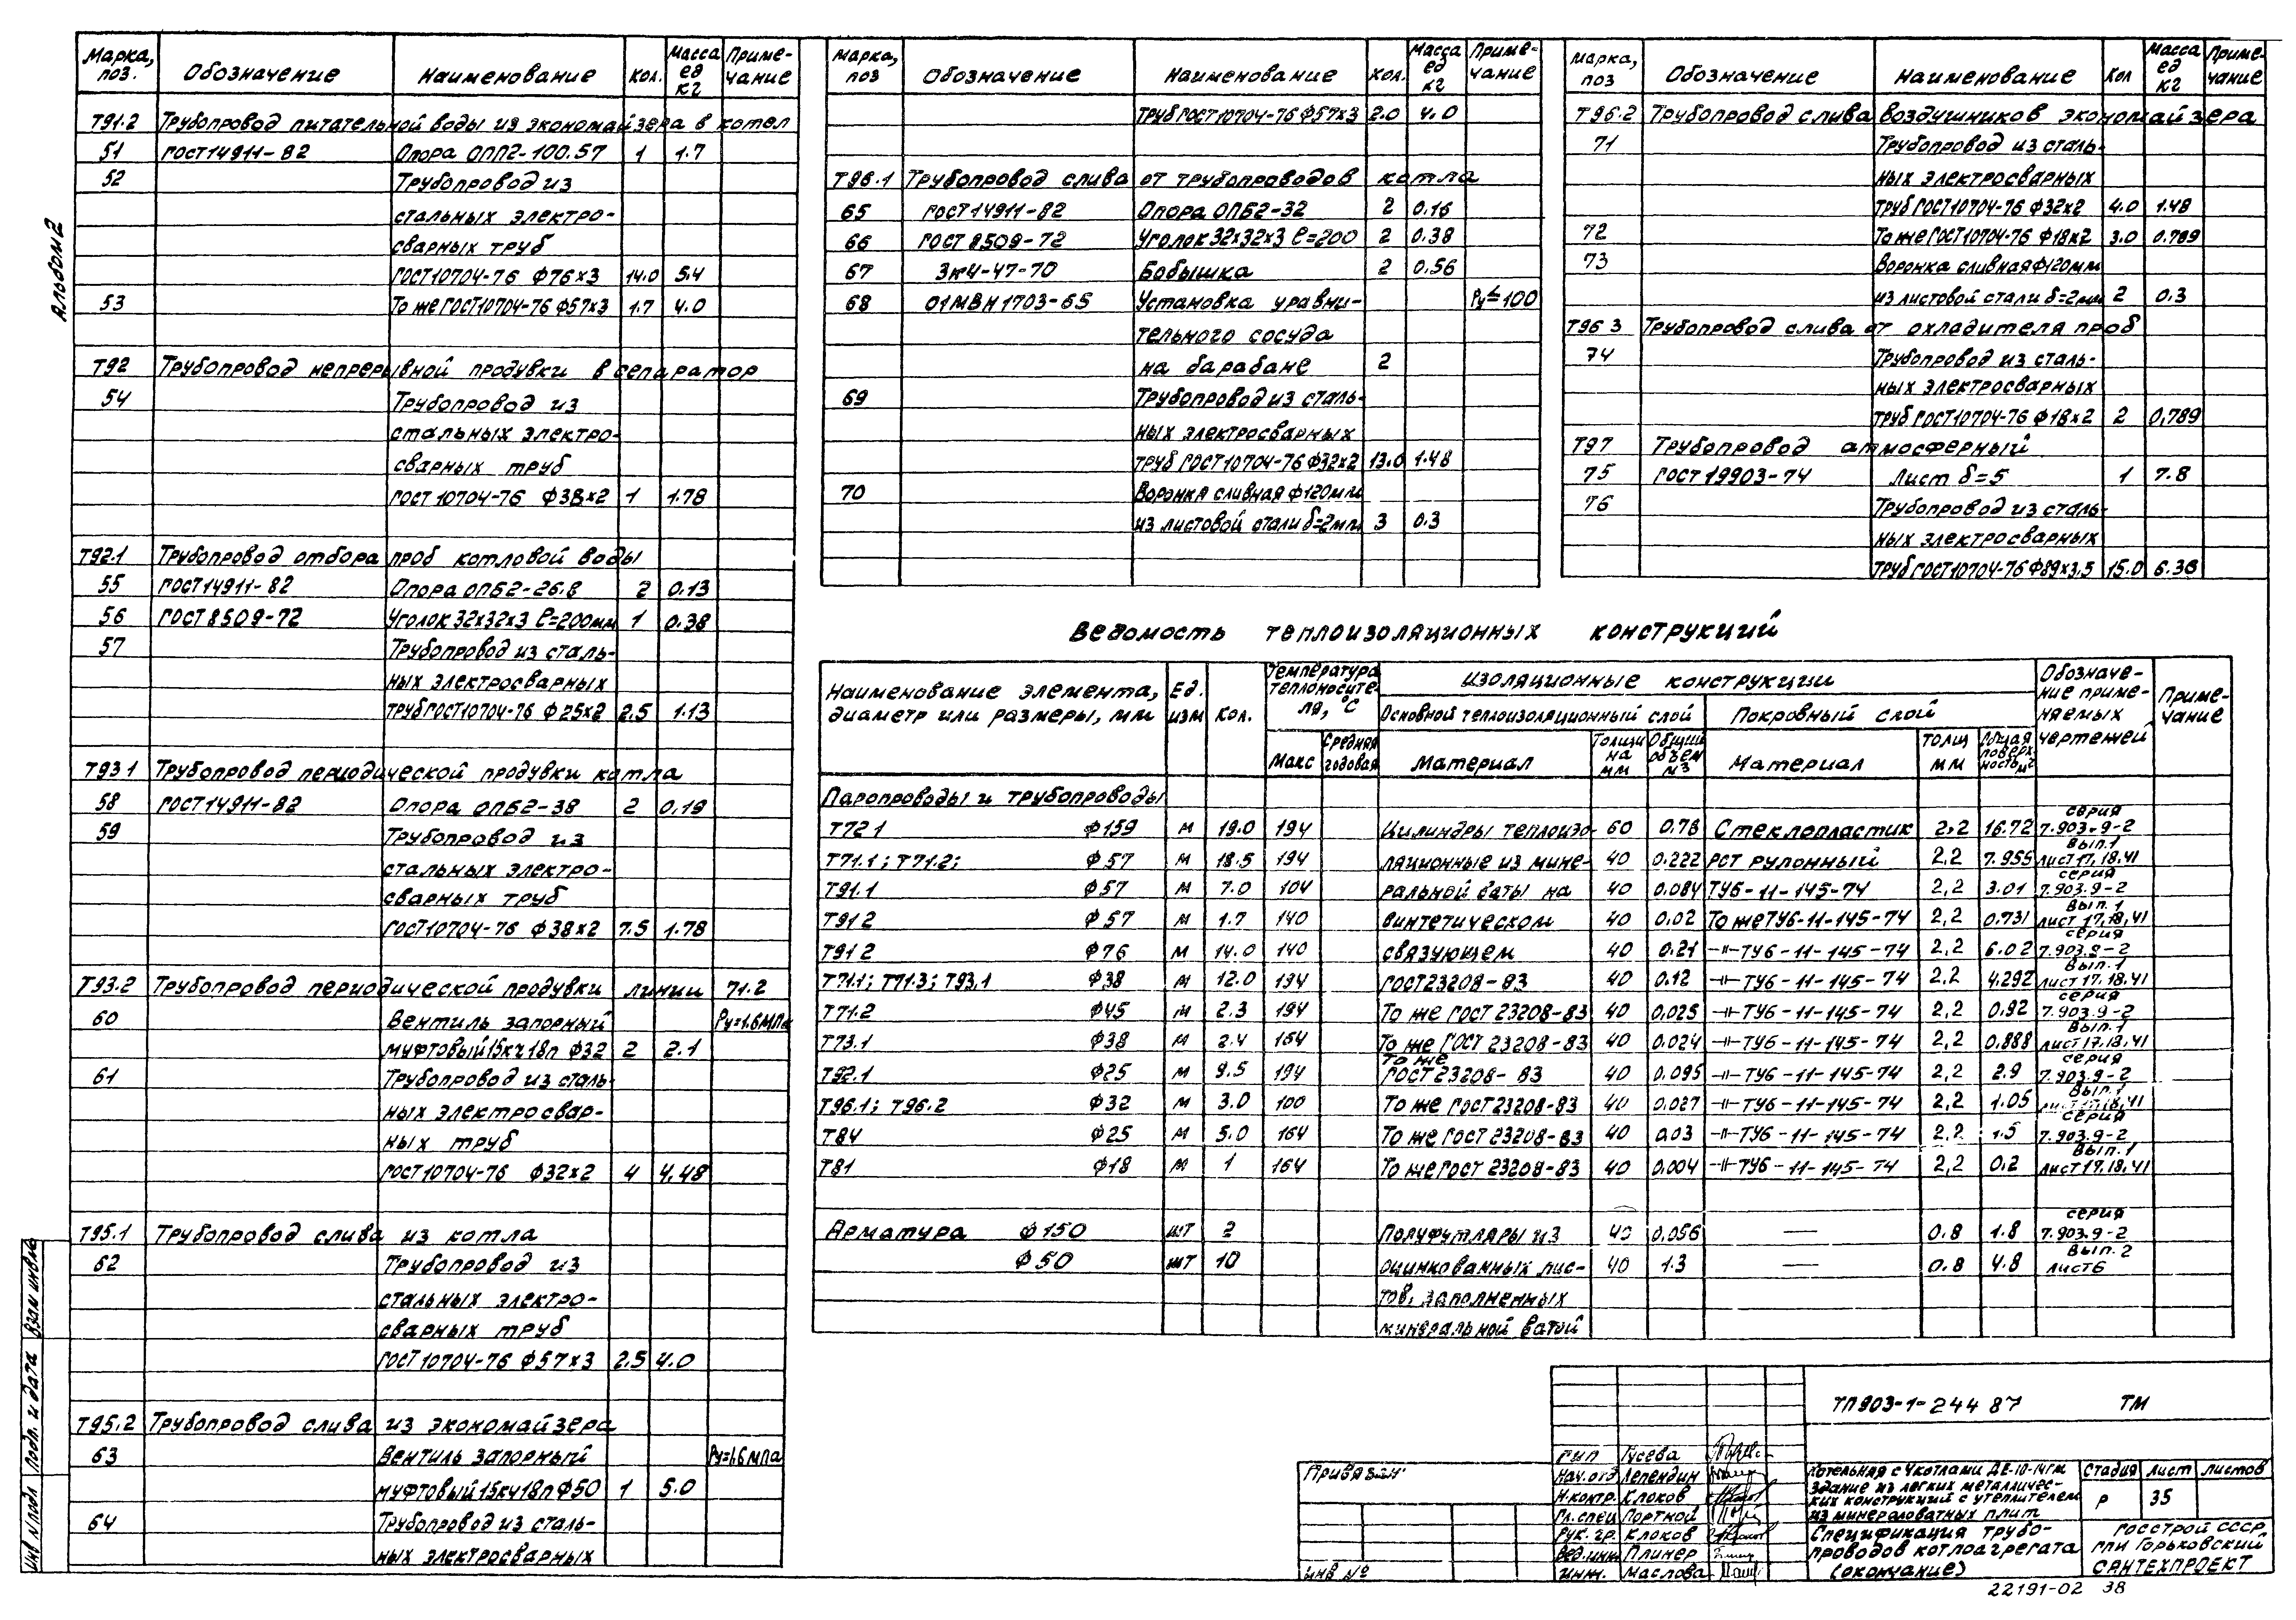 Альбом 2
Марка, поз. Обозначение Наименование Кол. Масса ед кг Приме-чание
Т91.2 Трубопровод питательной воды из экономайзера в котел
51 ГОСТ14911-82 Опора ОПП2-100.57 1 1.7
52 Трубопровод из
стальных электро-
сварных труб
ГОСТ10704-76 Ф76х3 14.0 5.4
53 То же ГОСТ10704-76 Ф57х3 1.7 4.0
Т92 Трубопровод непрерывной продувки в сепаратор
54 Трубопровод из
стальных электро-
сварных труб
ГОСТ 10704-76 Ф38х2 1 1.78
Т92.1 Трубопровод отбора проб котловой воды
55 ГОСТ14911-82 Опора ОПБ2-26.8 2 0.13
56 ГОСТ8509-72 Уголок 32х32х3 ℓ=200мм 1 0.38
57 Трубопровод из сталь-
ных электросварных
труб ГОСТ10704-76 Ф25х2 2.5 1.13
Т93 1 Трубопровод периодической продувки котла
58 ГОСТ14911-82 Опора ОПБ2-38 2 0.19
59 Трубопровод из
стальных электро-
сварных труб
ГОСТ10704-76 Ф38х2 7.5 1.78
Т93.2 Трубопровод периодической продувки линии 71.2
60 Вентиль запорный Ру=1.6МПа
муфтовый 15кч18п Ф32 2 2.1
61 Трубопровод из сталь-
ных электросвар-
ных труб
ГОСТ10704-76 Ф32х2 4 4.48
Т95.1 Трубопровод слива из котла
62 Трубопровод из
стальных электро-
сварных труб
ГОСТ10704-76 Ф57х3 2.5 4.0
Т95.2 Трубопровод слива из экономайзера
63 Вентиль запорный Ру=1.6МПа
муфтовый 15кч18п Ф50 1 5.0
64 Трубопровод из сталь-
ных электросварных
Марка, поз Обозначение Наименование Кол. Масса ед кг Приме-чание
труб ГОСТ10704-76 Ф57х3 2.0 4.0
Т96.1 Трубопровод слива от трубопроводов котла
65 ГОСТ14911-82 Опора ОПБ2-32 2 0.16
66 ГОСТ 8509-72 Уголок 32х32х3 ℓ=200 2 0.38
67 Зк4-47-70 Бобышка 2 0.56
68 01МВН1703-65 Установка уравни- Ру≤100
тельного сосуда
на барабане 2
69 Трубопровод из сталь-
ных электросварных
труб ГОСТ10704-76 Ф32х2 13.0 1.48
70 Воронка сливная ф120мм
из листовой стали δ=2мм 3 0.3
Марка, поз Обозначение Наименование Кол Масса ед кг Приме-чание
Т96.2 Трубопровод слива воздушников экономайзера
71 Трубопровод из сталь-
ных электросварных
труб ГОСТ10704-76 Ф32х2 4.0 1.48
72 То же ГОСТ10704-76 Ф18х2 3.0 0.789
73 Воронка сливная ф120мм
из листовой стали δ=2мм 2 0.3
Т96 3 Трубопровод слива от охладителя проб
74 Трубопровод из сталь-
ных электросварных
труб ГОСТ10704-76 Ф18х2 2 0,789
Т97 Трубопровод атмосферный
75 ГОСТ 19903-74 Лист δ=5 1 7.8
76 Трубопровод из сталь-
ных электросварных
труб ГОСТ10704-76 Ф89х3,5 15.0 6.36
Ведомость теплоизоляционных конструкций
Наименование элемента, диаметр или размеры, мм Ед. изм Кол. Температура теплоносите-ля, °С Изоляционные конструкции Обозначе-ние приме-няемых чертежей Приме-чание
Основной теплоизоляционный слой Покровный слой
Макс Средняя годовая Материал Толщи на мм Общий объем м3 Материал Толщ мм Общая поверх ность м2
Паропроводы и трубопроводы
Т72 1 Ф159 м 19.0 194 Цилиндры теплоизо- 60 0.78 Стеклопластик 2,2 16.72 серия 7.903.9-2
Т71.1; Т71.2; Ф57 м 18.5 194 ляционные из мине- 40 0.222 РСТ рулонный 2,2 7.955 Вып.1 лист 17,18,41
Т91.1 Ф57 м 7.0 104 ральной ваты на 40 0.084 ТУ6-11-145-74 2,2 3.01 серия 7.903.9-2
Т91 2 Ф57 м 1.7 140 винтетическом 40 0.02 То же ТУ6-11-145-74 2,2 0.731 Вып.1 лист 17,18,41
Т91 2 Ф76 м 14.0 140 связующем 40 0.21 -"- ТУ6-11-145-74 2,2 6.02 серия 7.903.9-2
Т71.1; Т71.3; Т93.1 Ф38 м 12.0 194 ГОСТ23208-83 40 0.12 -"- ТУ6-11-145-74 2,2 4.292 Вып.1 лист 17,18,41
Т71.2 Ф45 м 2.3 194 То же ГОСТ 23208-83 40 0,025 -"- ТУ6-11-145-74 2,2 0.92 серия 7.903.9-2
Т73.1 Ф38 м 2.4 164 То же ГОСТ 23208-83 40 0.024 -"- ТУ6-11-145-74 2,2 0.888 Вып.1 лист 17,18,41
Т92.1 Ф25 м 9.5 194 То же ГОСТ23208-83 40 0.095 -"- ТУ6-11-145-74 2,2 2.9 серия 7.903.9-2
Т96.1; Т96.2 Ф32 м 3.0 100 То же ГОСТ23208-83 40 0.027 -"- ТУ6-11-145-74 2,2 1.05 Вып.1 лист 17,18,41
Т84 Ф25 м 5.0 164 То же ГОСТ 23208-83 40 0.03 -"- ТУ6-11-145-74 2,2 1.5 серия 7.903.9-2
Т81 Ф18 м 1 164 То же ГОСТ 23208-83 40 0.004 -"- ТУ6-11-145-74 2,2 0.2 Вып.1 лист 17,18,41
Арматура Ф150 шт 2 Полуфутляры из 40 0,056 — 0.8 1.8 серия 7.903.9-2
Ф50 шт 10 оцинкованных лис- 40 1.3 — 0.8 4.8 Вып.2 лист6
тов, заполненных
минеральной ватой
ТП903-1-244 87 ТМ
Привязан:
Инв №
ГИП Гусева
Нач.отд Лепендин
Н.контр. Клоков
Гл.спец Портной
Рук.гр. Клоков
Вед.инж Плинер
Инж. Маслова
Котельная с 4 котлами ДЕ-10-14ГМ
Здание из легких металличес-
ких конструкций с утеплителем
из минераловатных плит
Стадия Лист Листов
Р 35
Спецификация трубо-
проводов котлоагрегата
(окончание)
Госстрой СССР
ГПИ Горьковский
САНТЕХПРОЕКТ
22191-02 38
Инв N подл Подп. и дата Взам инв№